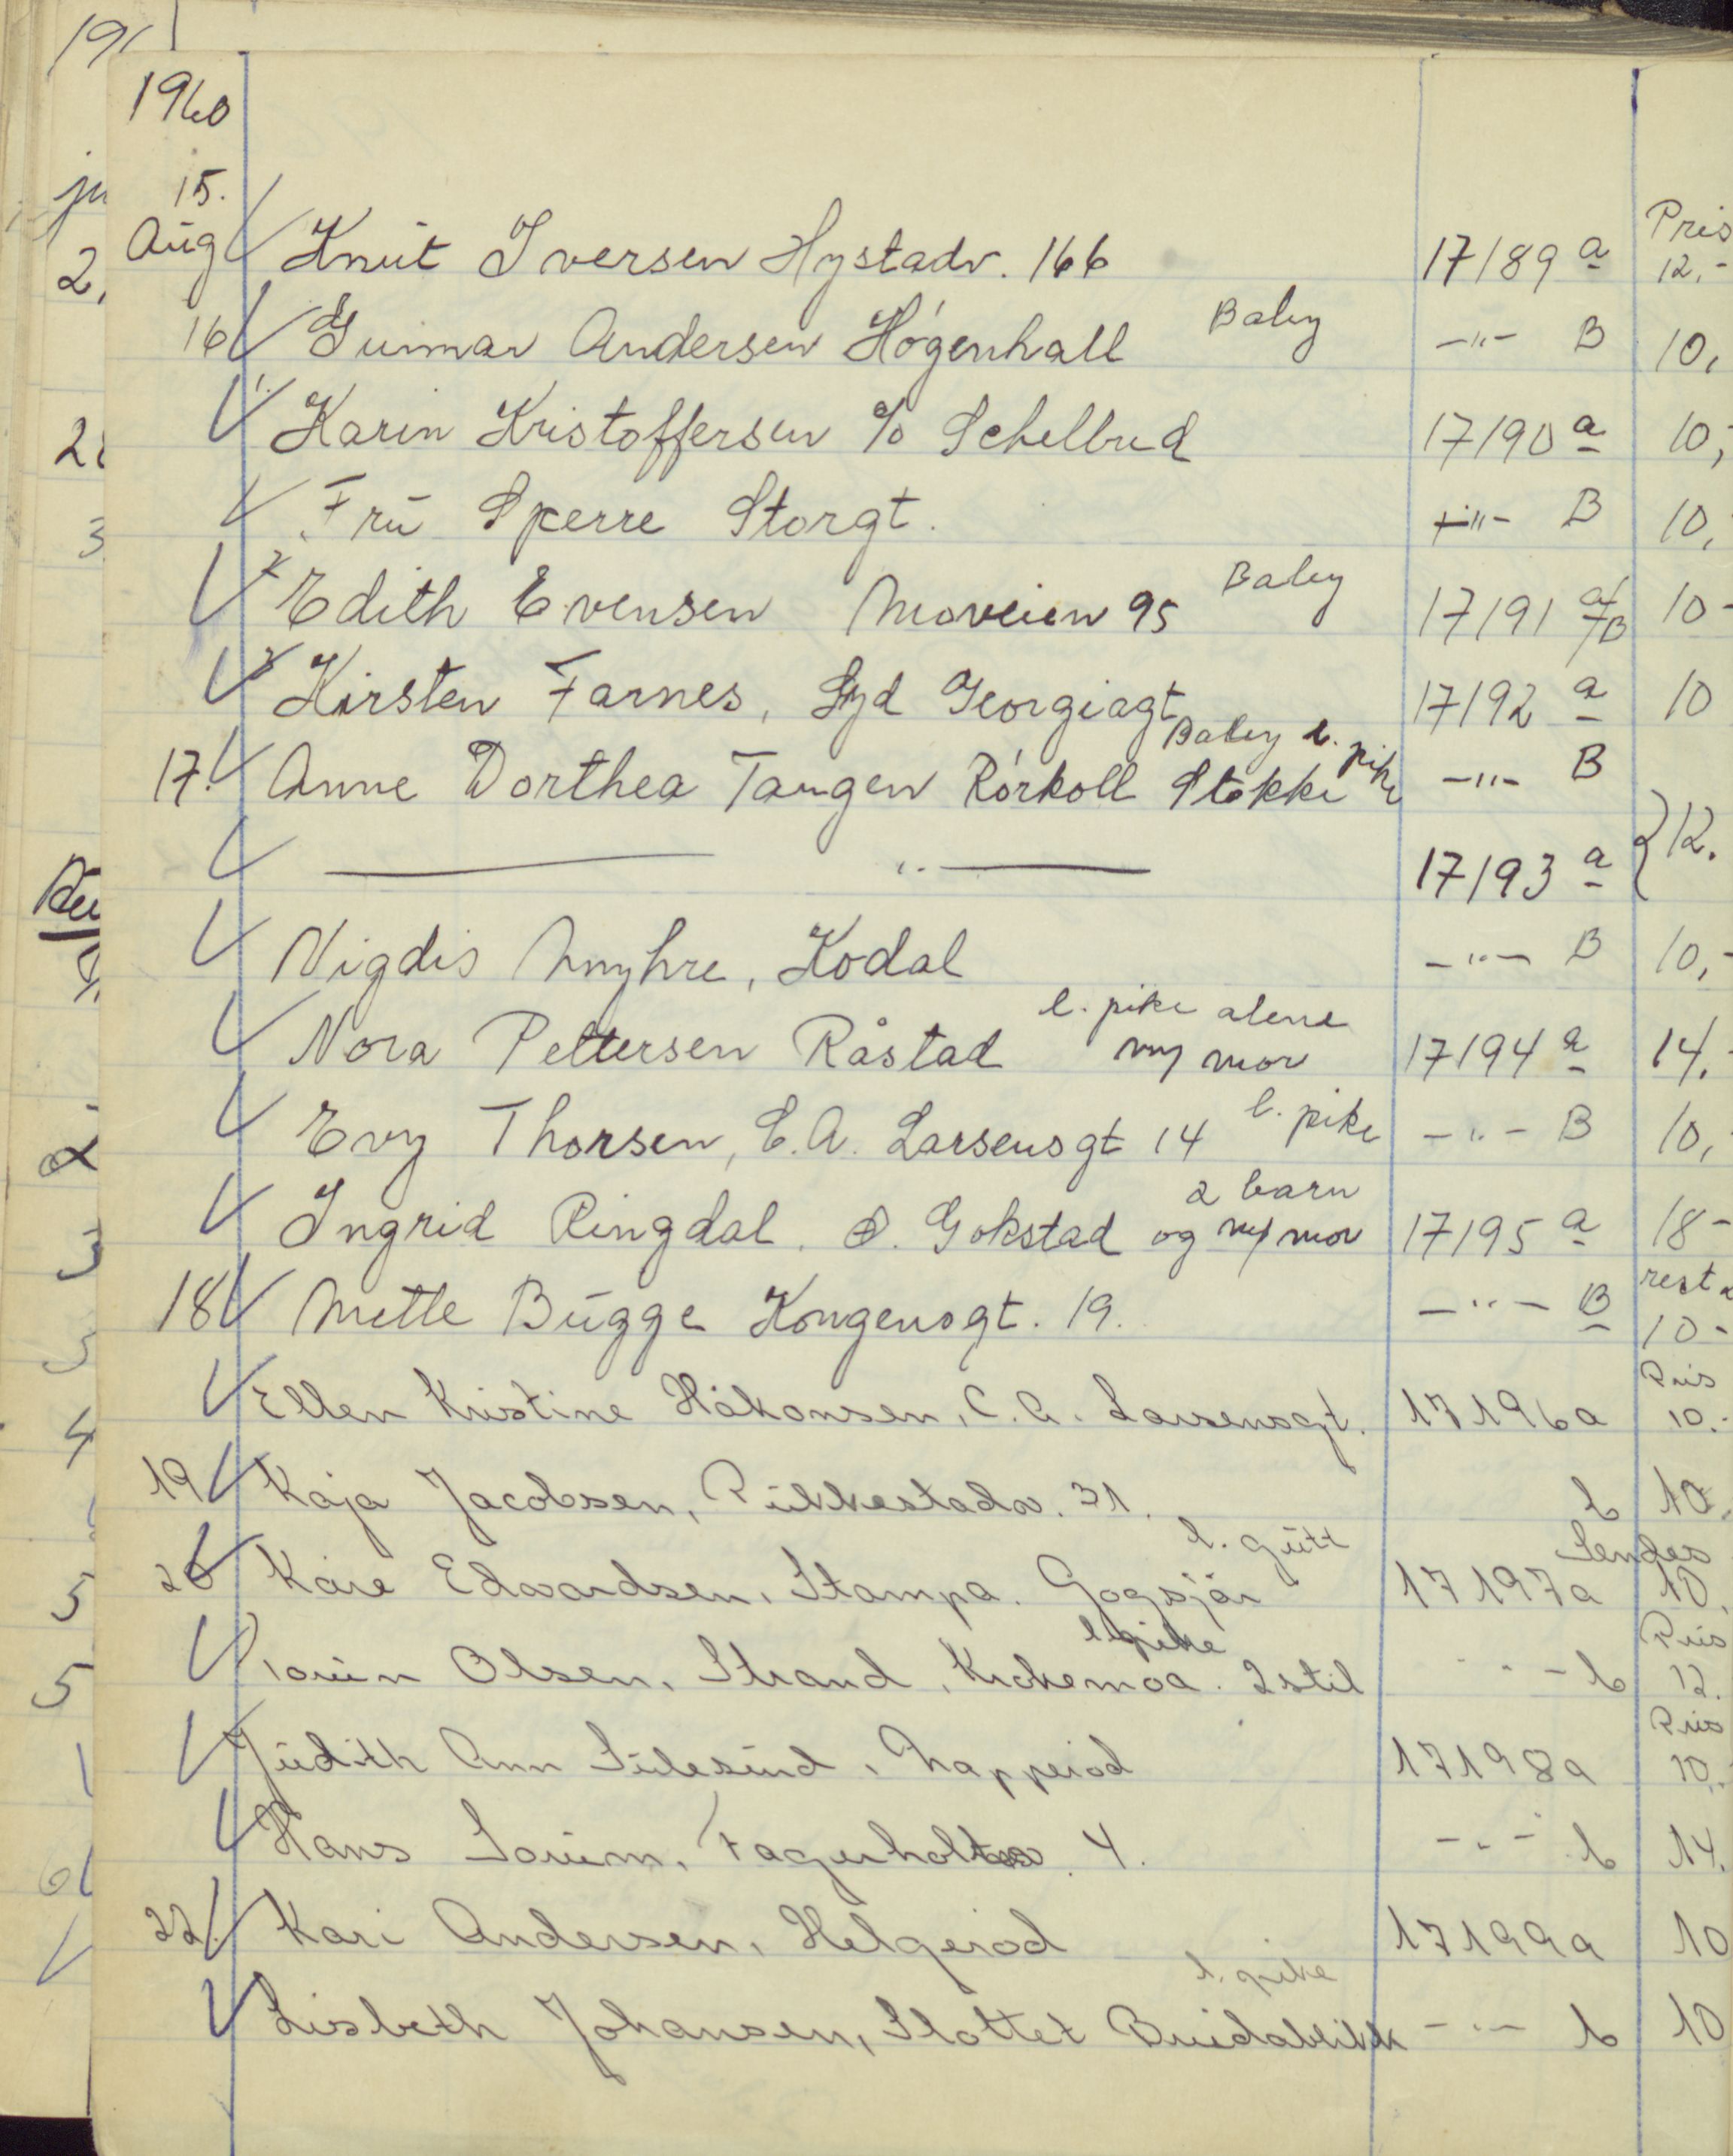 1960
15.
Aug Knut Iversen Hystadv. 166 17189 a Pris 12.-
16 Gunnar Andersen Høgenhall Baby -"- B 10,
Karin Kristoffersen c/o Schelbred 17190 a 10,-
Fru Sperre Storgt. -"- B 10,
Edith Evensen Moveien 95 Baby 17191 a/B 10-
Kirsten Farnes, Syd Georgiagt 17192 a 10
17. Anne Dorthea Tangen Rørkoll Stokke Baby l. pike -"- B
—— " —— 17193 a } 12.
Vigdis Myhre, Kodal -"- B 10,-
Nora Pettersen Råstad l. pike alene m/ mor 17194 a 14.-
Evy Thorsen, C.A. Larsensgt 14 l. pike -"- B 10,-
Ingrid Ringdal. Ø. Gokstad 2 barn og m/ mor 17195 a 18-
18 Mette Bugge Kongensgt. 19. -"- B rest 10-
Ellen Kristine Håkonsen, C.A. Larsensgt. 17196a Pris 10.-
19 Kaja Jacobsen, Pukkestadv. 31. b 10.
20 Kåre Edvardsen, Stampa. Gogsjør l. gutt 17197a Sendes 10.
Olsen, Strand, Krokemoa. l. pike 2 stil -"- b Pris 12.
Judith Ann Sulesund, Napperød 17198a Pris 10,-
Hans Sørum, Fagerholtv. 4. -"- b 14.
22. Kari Andersen, Helgerød 17199a 10
Lisbeth Johansen, Slottet Breidablikk l. pike -"- b 10